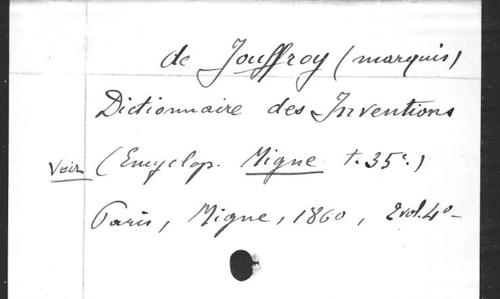 de Jouffroy (marquis)
Dictionnaire des Inventions
Voir (Encyclop. Migne t. 35e.)
Paris, Migne, 1860, 2 vol. 4o